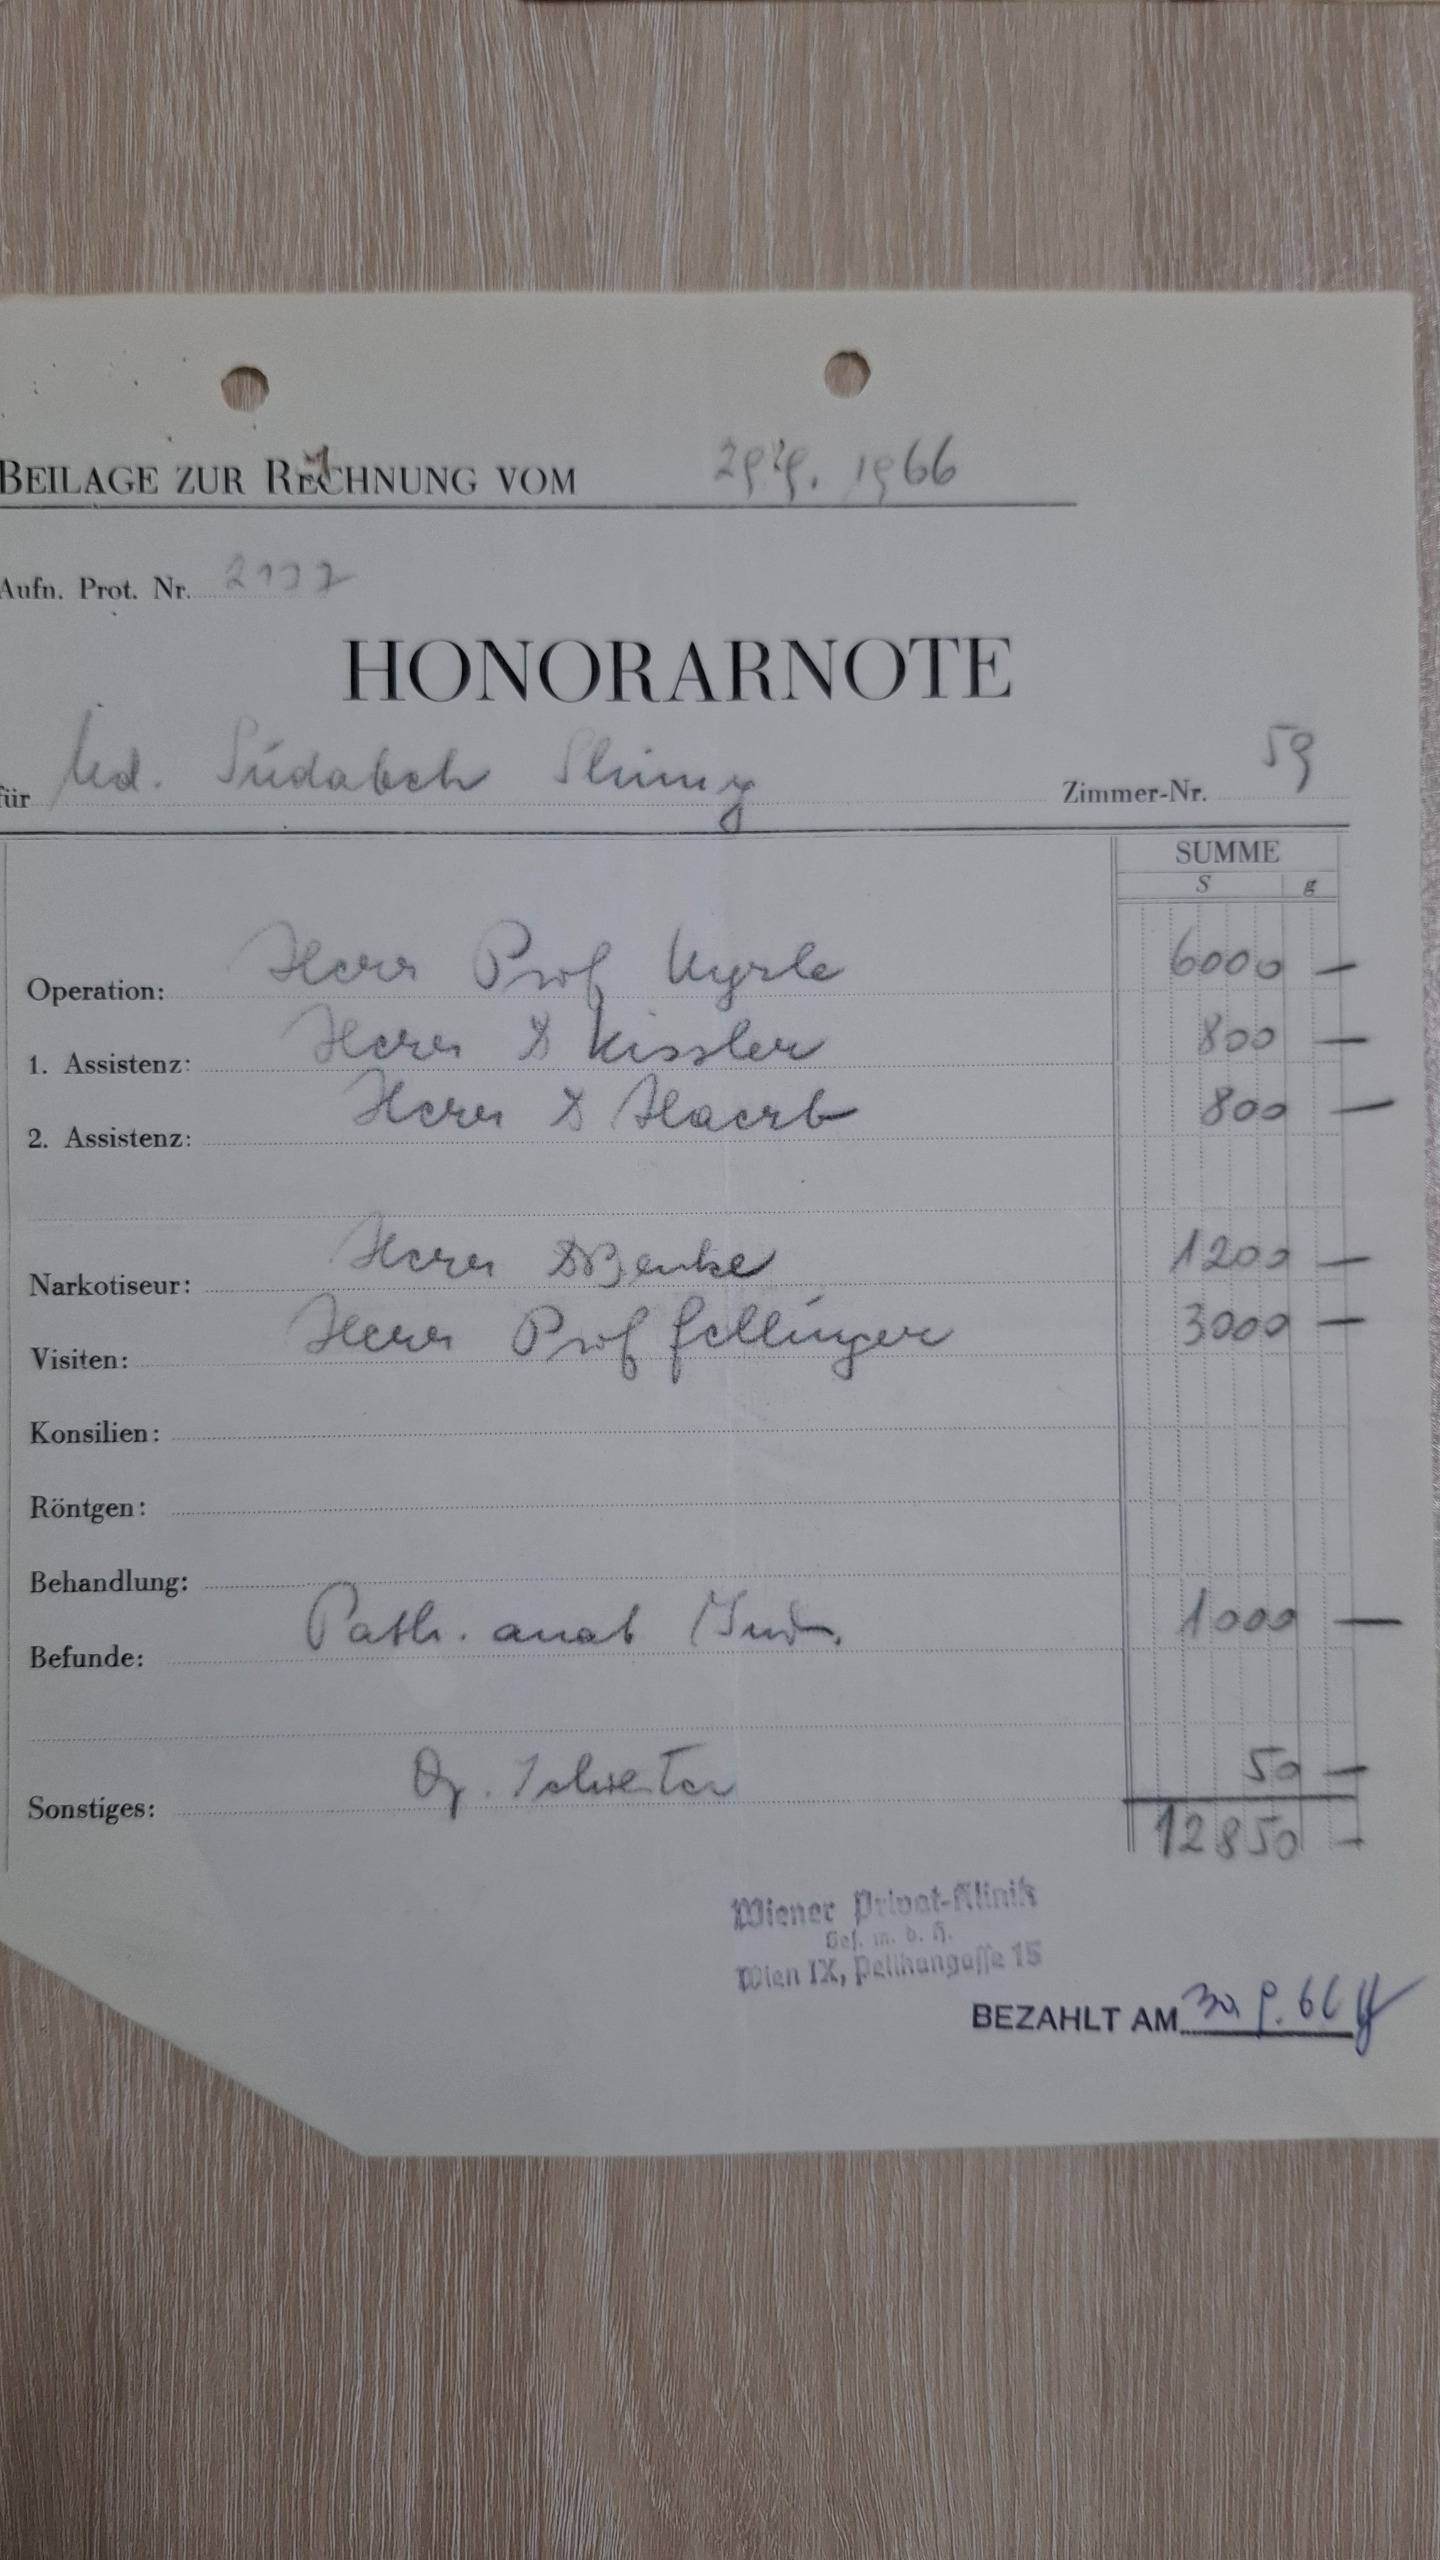 BEILAGE ZUR RECHNUNG VOM 29.9. 1966
Aufn. Prot. Nr.
HONORARNOTE
für Südabeh Zimmer-Nr. 59
SUMME
S g
Operation: Herr Prof Kyrle 6000 —
1. Assistenz: Herr D Kissler 800 —
2. Assistenz: Herr D 800 —
Narkotiseur: Herr D Benke 1200 —
Visiten: Herr Prof Fellinger 3000 —
Konsilien:
Röntgen:
Behandlung:
Befunde: Path. anat 1000 —
Sonstiges: Op. Schwester 50 —
12850 —
Wiener Privat-Klinik
Ges. m. b. H.
Wien IX, Pelikangasse 15
BEZAHLT AM 30. 9. 66